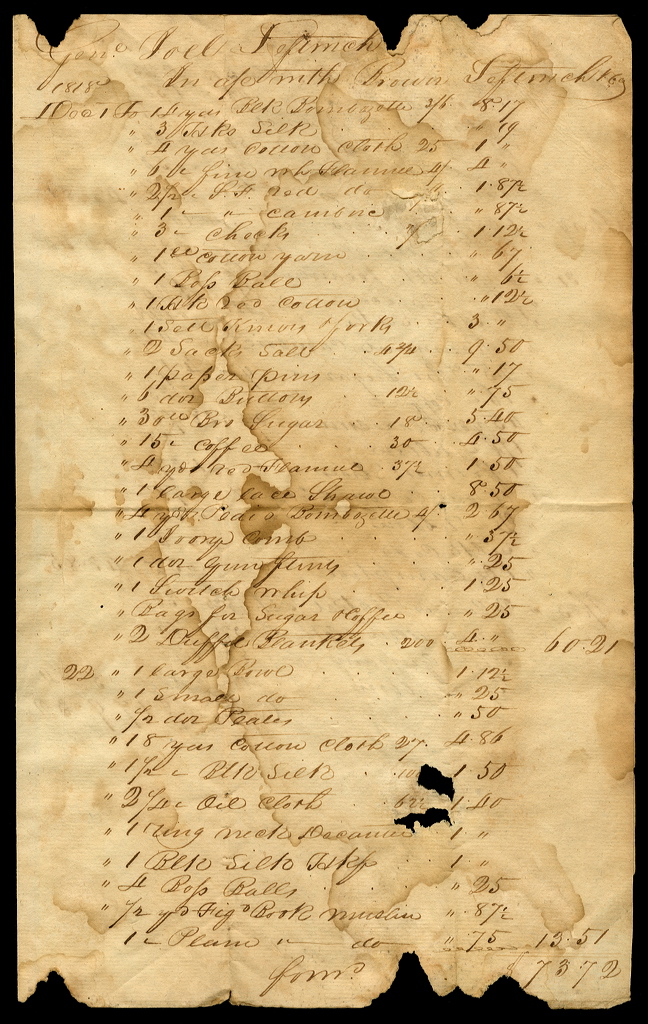 Genl Joel Leftwich
In a/c with Brown Leftwich & Co
1818
Dec 1 To 14 yds Blk Bombazette 3/6 8.17
" 3 Hks Silk " 19
" 4 yds Cotton Cloth 25 1 "
" 6 " fine wh Flannel 4/ 4 "
" 2 1/2 " S.F. red do 1.87½
" 1 " " cambric " 87½
" 3 " Checks 1.12½
" 1 lb Cotton yarn " 67
" 1 Boss Ball " 6¼
" 1 Hk red Cotton " 12½
" 1 Sett Knives & forks 3 "
" 2 Sacks Salt 4 3/4 9.50
" 1 paper pins " 17
" 6 doz Buttons 12½ " 75
" 30 lb Bro Sugar 18 5.40
" 15 " Coffee 30 4.50
" 4 yds red Flannel 37½ 1.50
" 1 large lace Shawl 8.50
" 4 yds Bombazette 4/ 2.67
" 1 Ivory Comb " 37½
" 1 doz Gun flints " 25
" 1 Switch whip 1.25
" Bags for Sugar & Coffee " 25
" 2 Duffle Blankets 200 4 " 60.21
22 " 1 large Bowl 1.12½
" 1 Small do " 25
" 1/2 doz Plates " 50
" 18 yds Cotton Cloth 27 4.86
" 1 1/2 " Blk Silk 100 1.50
" 2 1/4 " Oil Cloth 62½ 1.40
" 1 ring neck Decanter 1 "
" 1 Blk Silk Hkf 1 "
" 4 Boss Balls " 25
" 1/2 yd Figd Book muslin " 87½
1 " Plain " do " 75 13.51
forwd $ 73.72